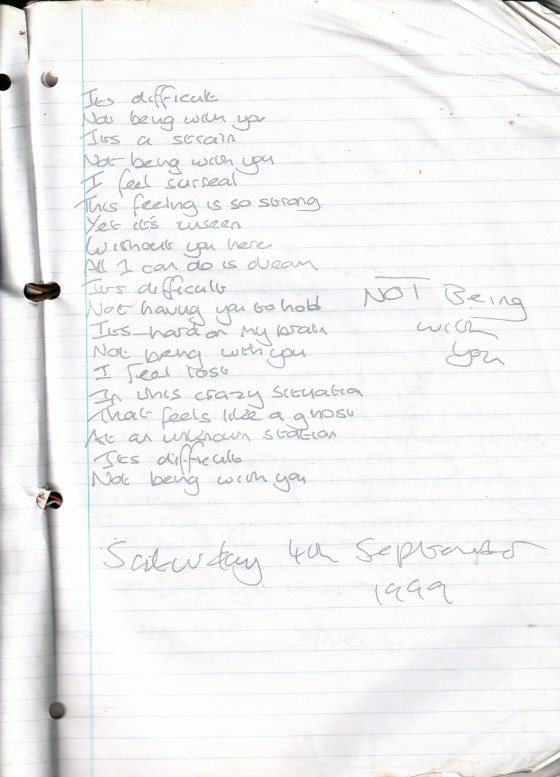 Its difficult
Not being with you
Its a strain
Not being with you
I feel surreal
This feeling is so strong
Yet it's unseen
Without you here
All I can do is dream
Its difficult
Not having you to hold
Its hard on my brain
Not being with you
I feel lost
In this crazy situation
That feels like a ghost
At an unknown station
Its difficult
Not being with you
NOT Being
with
you
Saturday 4th September
1999